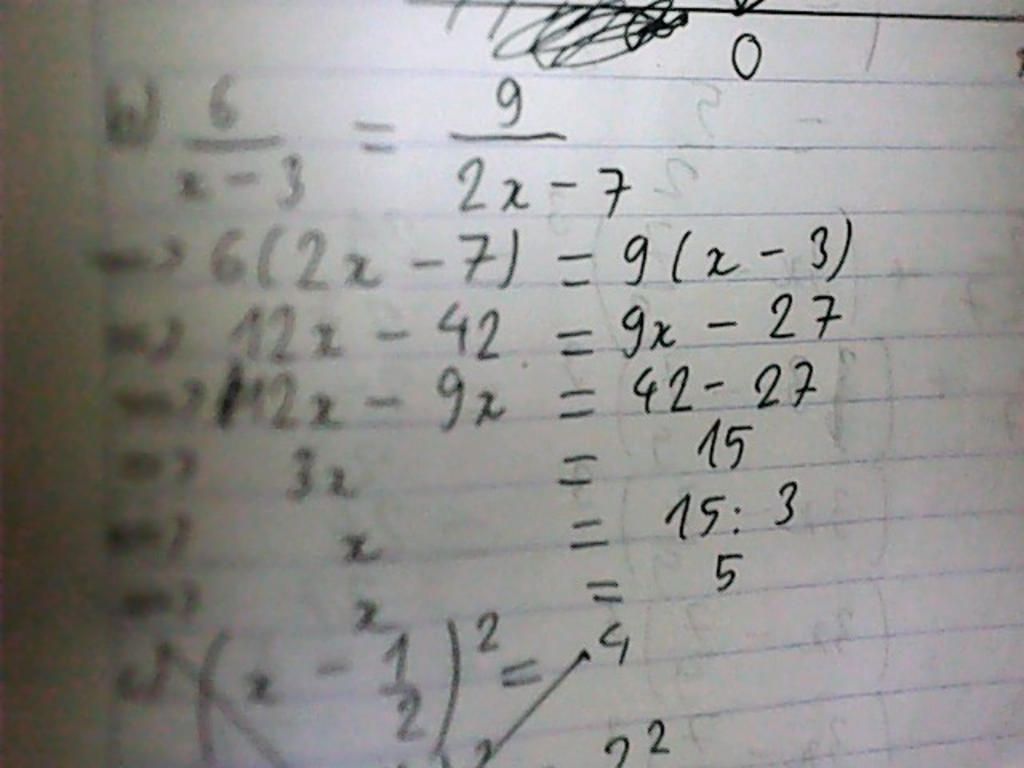 0
b) 6/(x - 3) = 9/(2x - 7)
=> 6(2x - 7) = 9(x - 3)
=> 12x - 42 = 9x - 27
=> 12x - 9x = 42 - 27
=> 3x = 15
=> x = 15 : 3
=> x = 5
c) (x - 1/2)² = 4
2²